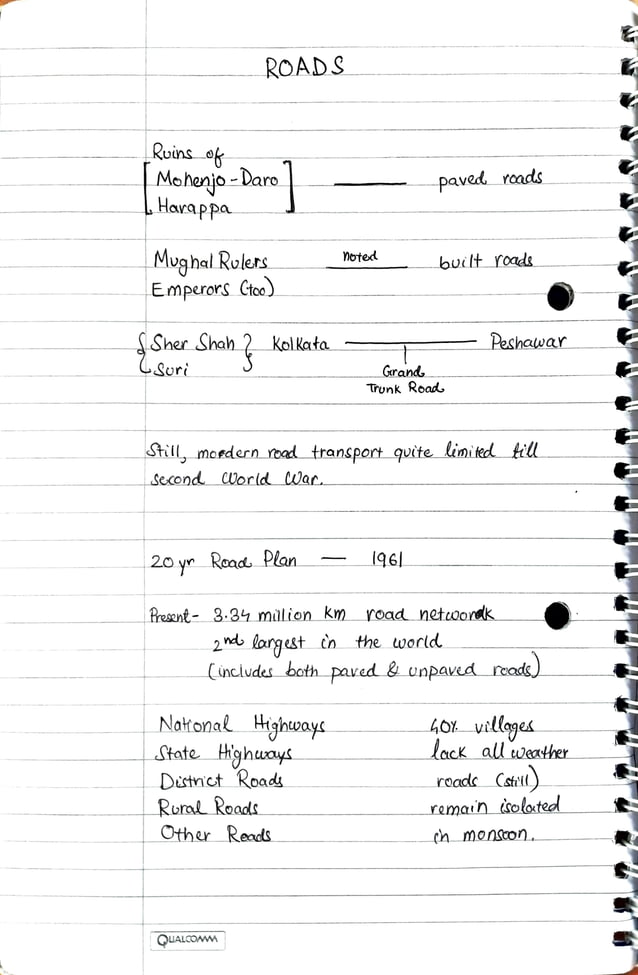 ROADS
Ruins of
Mohenjo-Daro — paved roads
Harappa
Mughal Rulers noted built roads
Emperors (too)
{Sher Shah} Kolkata — Peshawar
Suri
Grand
Trunk Road
Still, mordern road transport quite limited till
second World War.
20 yr Road Plan — 1961
Present - 3.34 million km road network
2nd largest in the world
(includes both paved & unpaved roads)
National Highways 40% villages
State Highways lack all weather
District Roads roads (still)
Rural Roads remain isolated
Other Roads in monsoon.
QUALCOMM